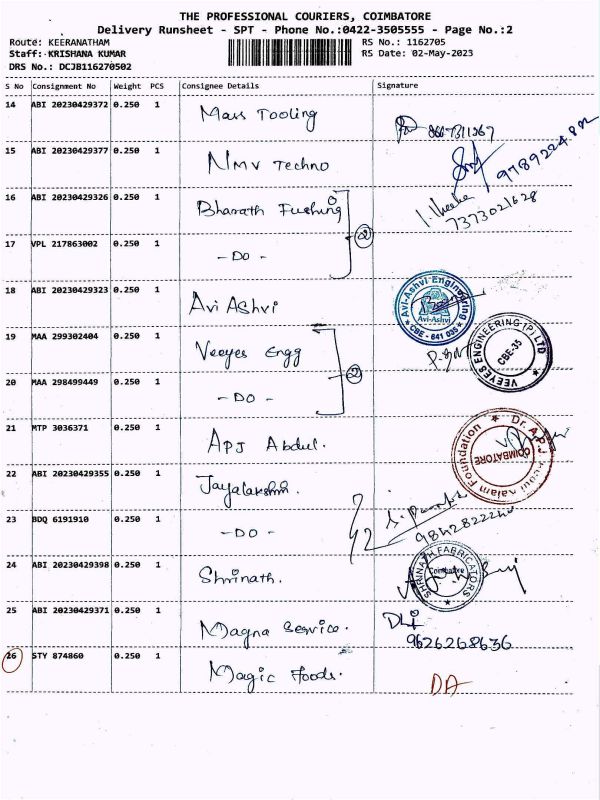 THE PROFESSIONAL COURIERS, COIMBATORE
Delivery Runsheet - SPT - Phone No.:0422-3505555 - Page No.:2
Route: KEERANATHAM
RS No.: 1162705
Staff: KRISHANA KUMAR
RS Date: 02-May-2023
DRS No.: DCJB116270502
S No Consignment No Weight PCS Consignee Details Signature
14 ABI 20230429372 0.250 1 Mars Tooling
15 ABI 20230429377 0.250 1 NMV Techno
16 ABI 20230429326 0.250 1 Bharath
7373021628
17 VPL 217863002 0.250 1 - DO - 2
18 ABI 20230429323 0.250 1 Avi Ashvi
Avi-Ashvi Engineering
Avi-Ashvi
CBE - 641 035
19 MAA 299302404 0.250 1 Veeyes Engg
VEEYES ENGINEERING (P) LTD
CBE-35
20 MAA 298499449 0.250 1 - DO - 2
21 MTP 3036371 0.250 1 APJ Abdul.
COIMBATORE
22 ABI 20230429355 0.250 1 Jayalakshmi.
23 BDQ 6191910 0.250 1 - DO -
24 ABI 20230429398 0.250 1 Shrinath.
SHRINATH FABRICATORS
Coimbatore
25 ABI 20230429371 0.250 1 Magna Service.
9626268636
26 STY 874860 0.250 1 Magic Foods.
DA